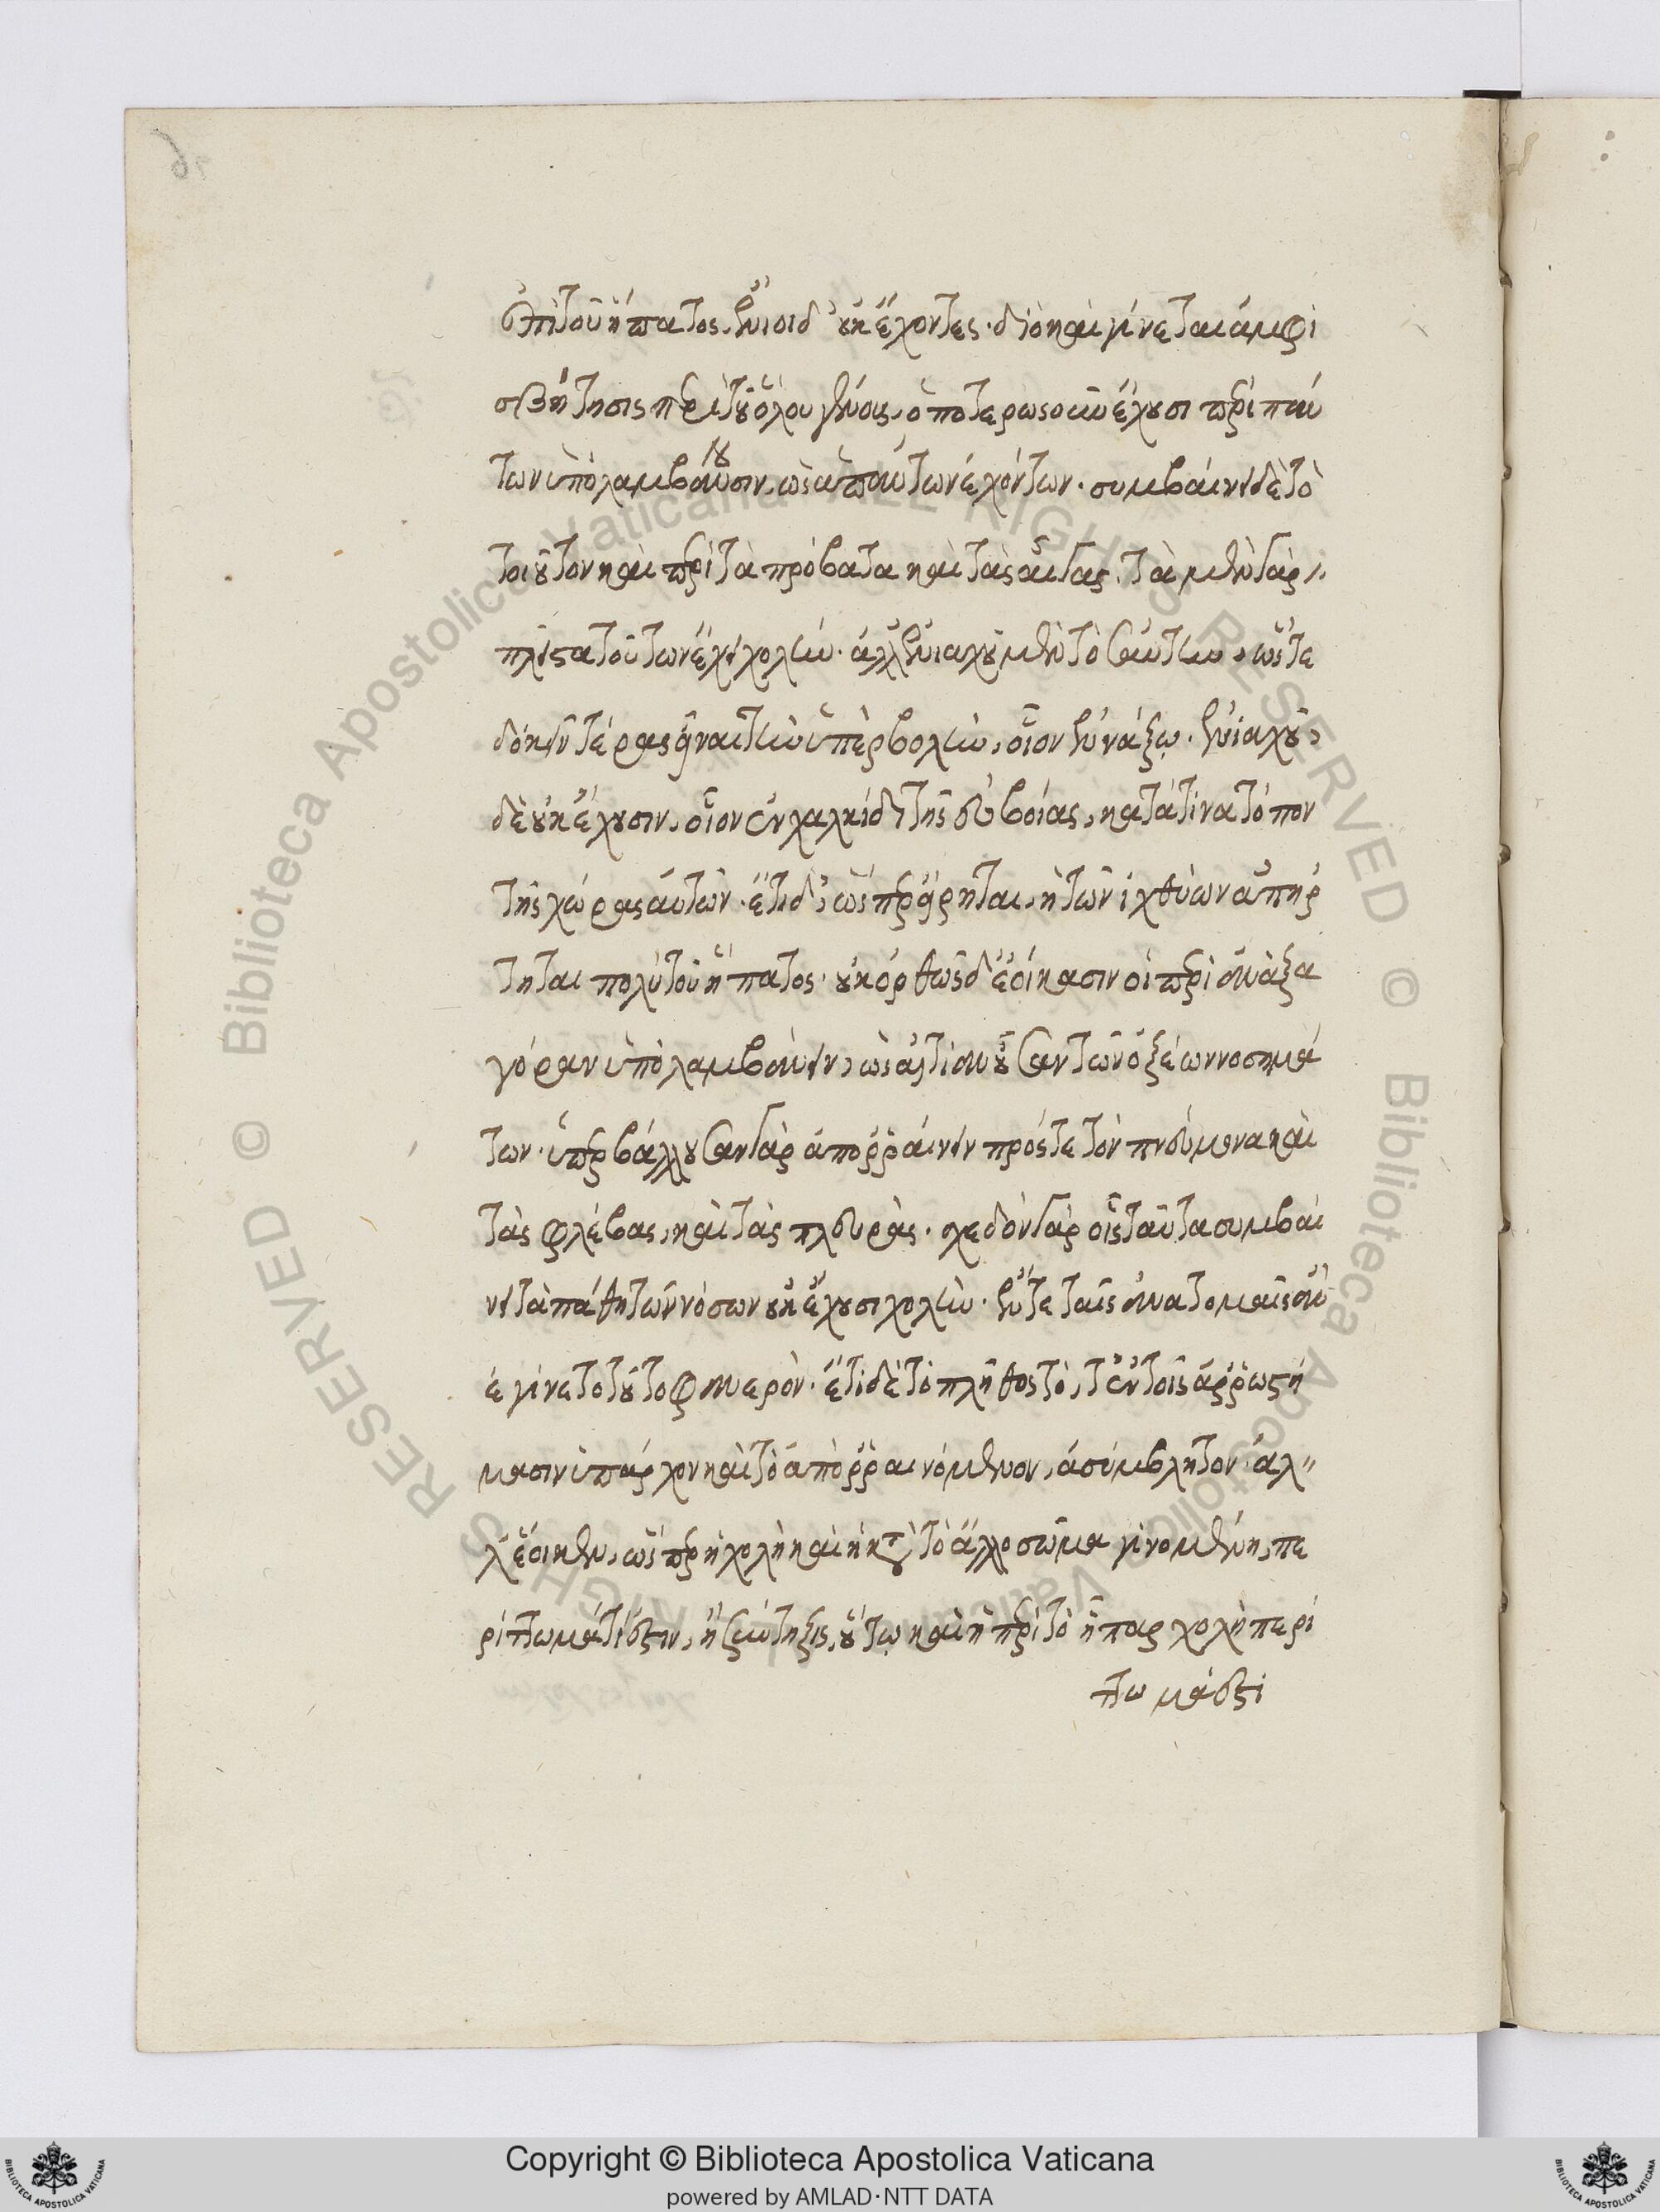 ἐπὶ τοῦ ἥπατος, ἔνιοι δ' οὐκ ἔχοντες· διὸ καὶ γίνεται ἀμφι
σβήτησις περὶ τοῦ ὅλου γένους, ὁποτέρως οὖν ἔχουσι περὶ πάν
των ὑπολαμβάνουσιν, ὡς ἁπάντων ἐχόντων· συμβαίνει δὲ τὸ
τοιοῦτον καὶ περὶ τὰ πρόβατα καὶ τὰς αἶγας. τὰ μὲν γὰρ
πλεῖστα τούτων ἔχει χολήν· ἀλλ' ἐνιαχοῦ μὲν τοσαύτην, ὥστε
δοκεῖν τέρας εἶναι τὴν ὑπερβολήν, οἷον ἐν νάξῳ. ἐνιαχοῦ
δὲ οὐκ ἔχουσιν, οἷον ἐν χαλκίδι τῆς εὐβοίας, κατά τινα τόπον
τῆς χώρας αὐτῶν. ἔτι δ', ὥσπερ εἴρηται, ἡ τῶν ἰχθύων ἀπήρ
τηται πολὺ τοῦ ἥπατος· οὐκ ὀρθῶς δ' ἐοίκασιν οἱ περὶ ἀναξα
γόραν ὑπολαμβάνειν, ὡς αἰτίαν οὖσαν τῶν ὀξέων νοσημά
των· ὑπερβάλλουσαν γὰρ ἀπορραίνειν πρός τε τὸν πνεύμονα καὶ
τὰς φλέβας, καὶ τὰς πλευράς. σχεδὸν γὰρ οἷς ταῦτα συμβαί
νει τὰ πάθη τῶν νόσων οὐκ ἔχουσι χολήν. ἔν τε ταῖς ἀνατομαῖς ἂν
ἐγίνετο τοῦτο φανερόν. ἔτι δὲ τὸ πλῆθος τὸ, τ' ἐν τοῖς ἀρρωστή
μασιν ὑπάρχον καὶ τὸ ἀπορραινόμενον, ἀσύμβλητον. ἀλ
λ' ἔοικεν, ὥσπερ ἡ χολὴ καὶ ἡ κατὰ τὸ ἄλλο σῶμα γινομένη, πε
ρίττωμά τί ἐστιν, ἢ σύντηξις, οὕτω καὶ ἡ περὶ τὸ ἧπαρ χολὴ περί
ττωμά ἐστι
Copyright © Biblioteca Apostolica Vaticana
powered by AMLAD·NTT DATA
© Biblioteca Apostolica Vaticana ALL RIGHTS RESERVED © Biblioteca Apostolica Vaticana ALL RIGHTS RESERVED